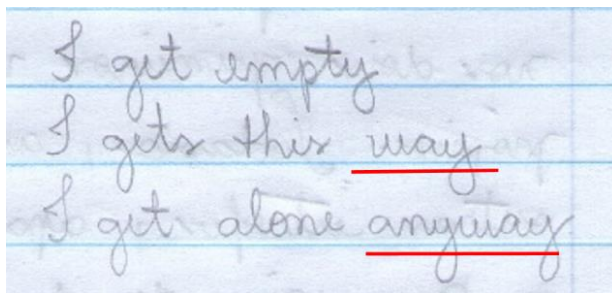 I get empty
I gets this way
I get alone anyway